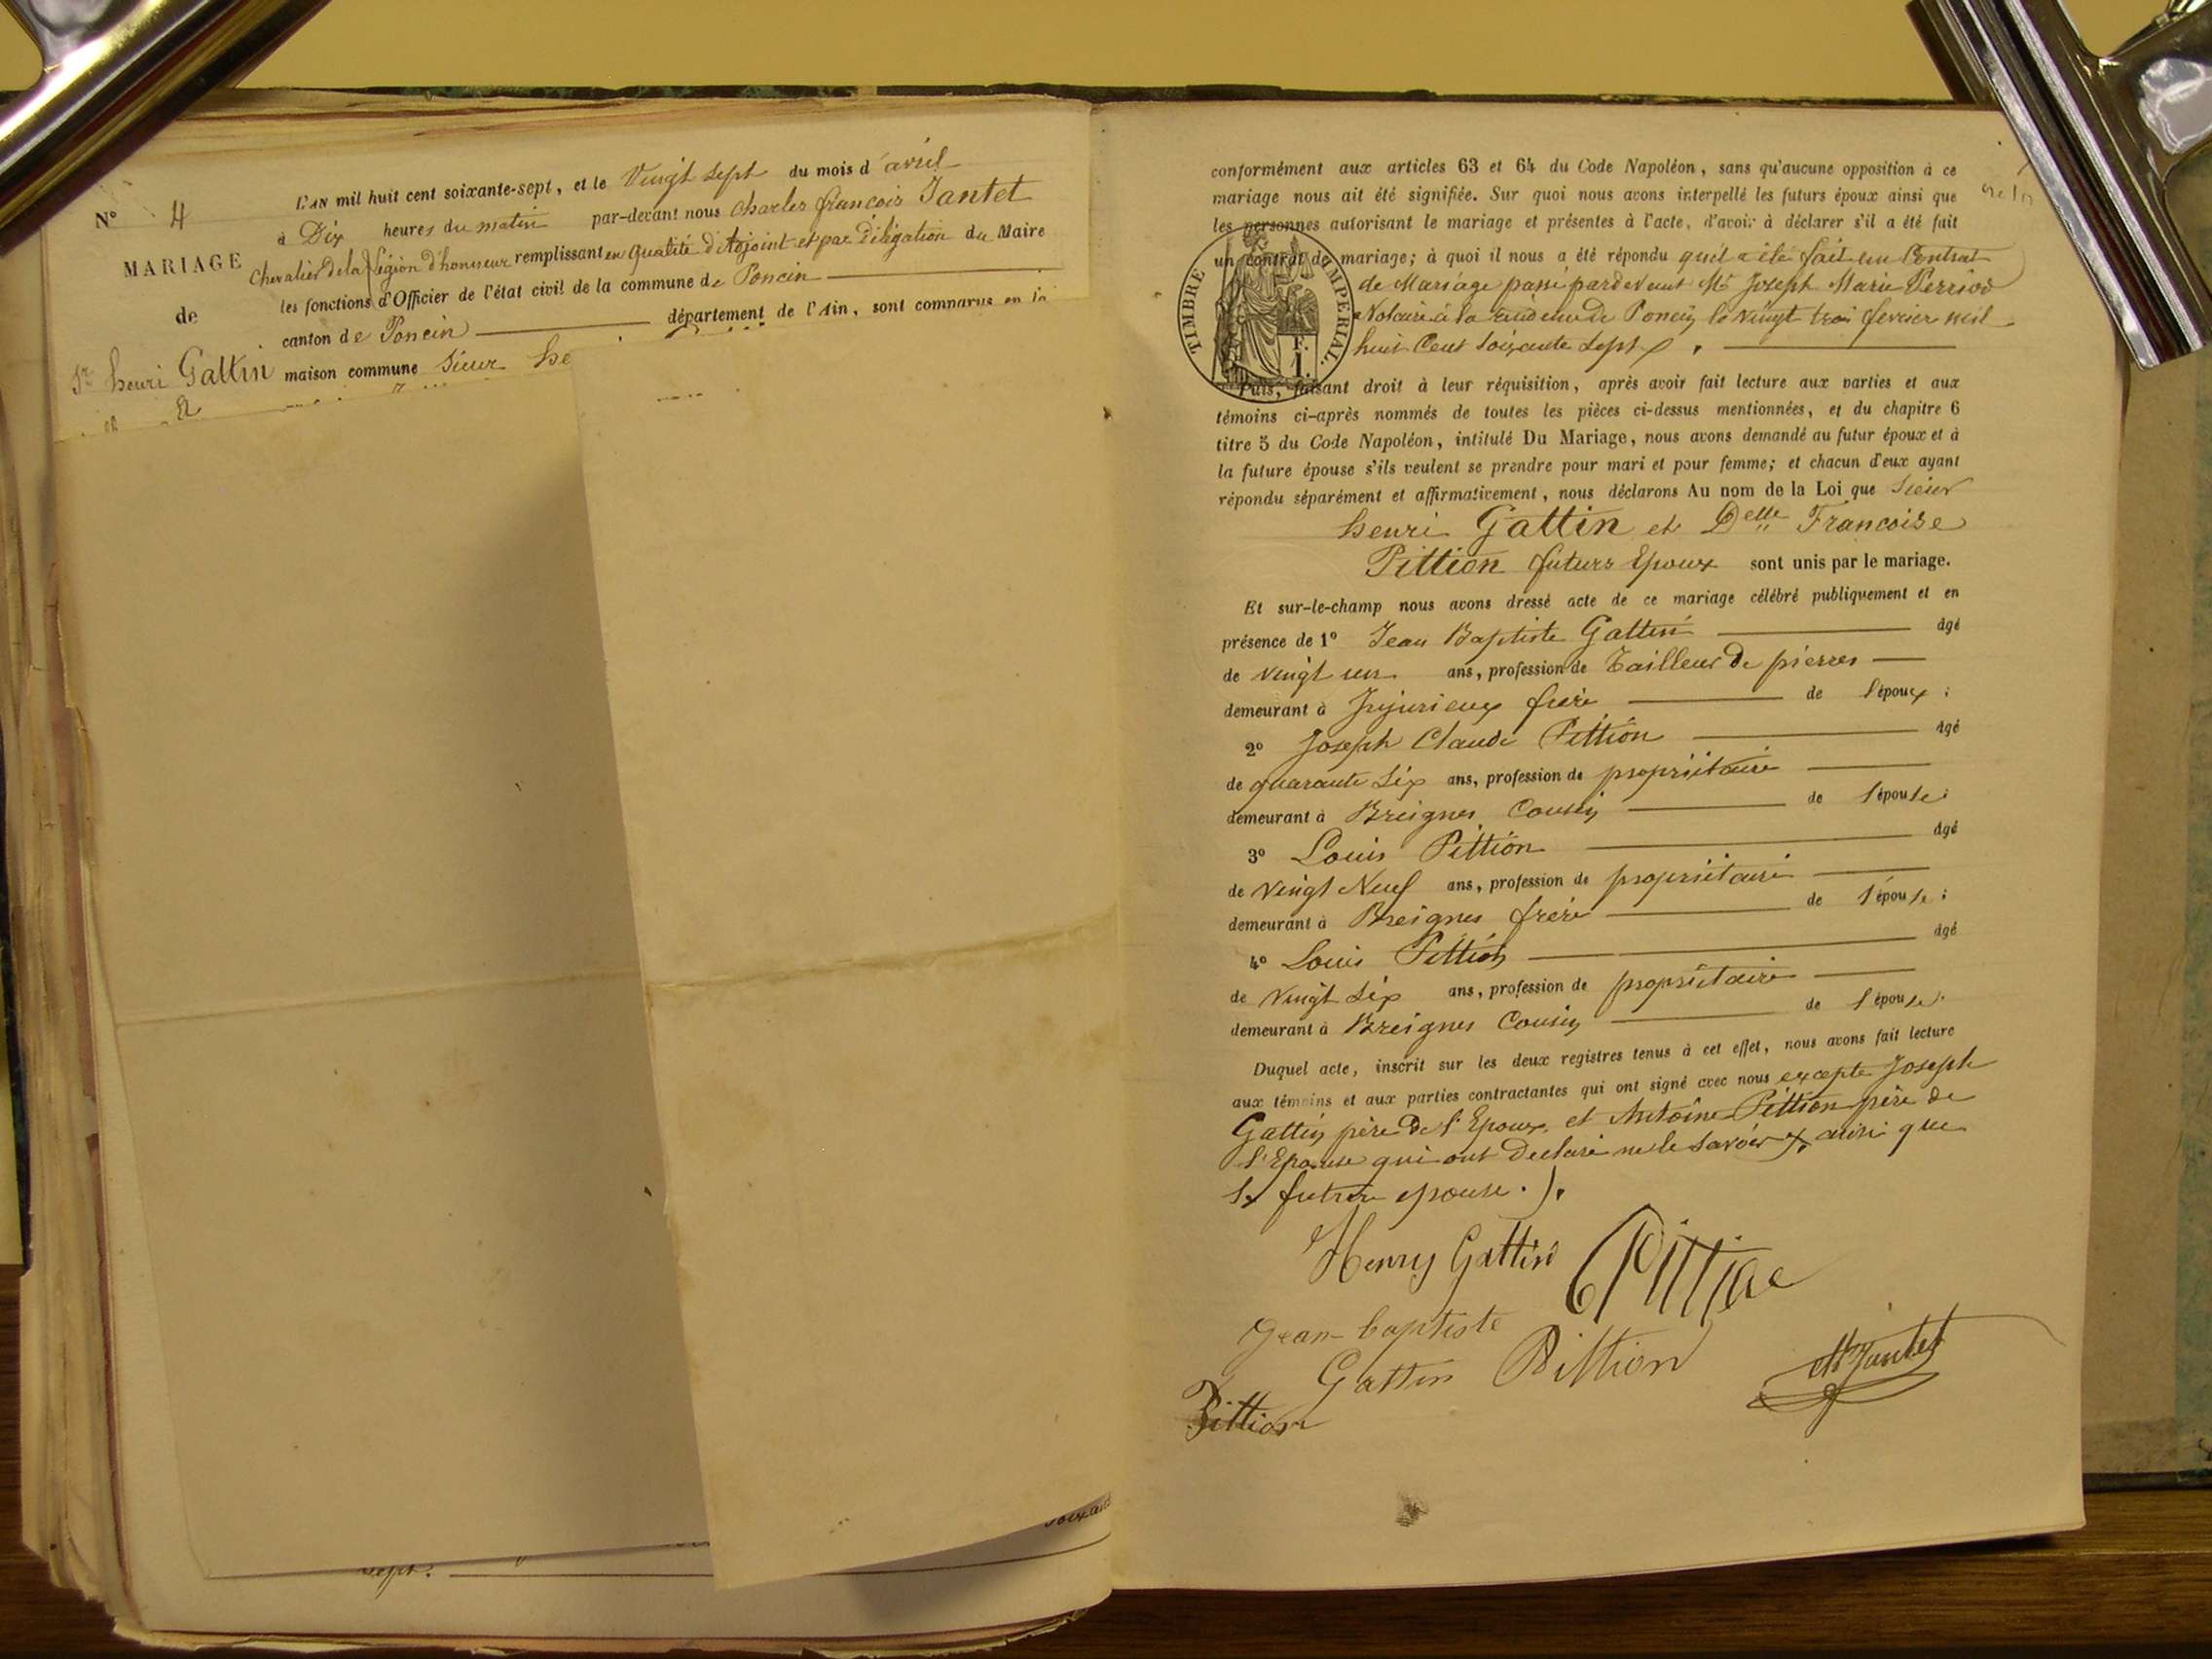 N° 4
MARIAGE
de
Sr henri Gattin
et
L'AN mil huit cent soixante-sept, et le Vingt Sept du mois d'avril
à Dix heures du matin par-devant nous Charles françois Jantet
Chevalier de la Légion d'honneur remplissant en qualité d'Adjoint et par délégation du Maire
les fonctions d'Officier de l'état civil de la commune de Poncin
canton de Poncin département de l'Ain, sont comparus en la
maison commune Sieur he
sept.
conformément aux articles 63 et 64 du Code Napoléon, sans qu'aucune opposition à ce
mariage nous ait été signifiée. Sur quoi nous avons interpellé les futurs époux ainsi que
les personnes autorisant le mariage et présentes à l'acte, d'avoir à déclarer s'il a été fait
un contrat de mariage; à quoi il nous a été répondu qu'il a été fait un Contrat
de Mariage passé pardevant Me Joseph Marie Perriod
Notaire à la résidence de Poncin le vingt trois fevrier mil
huit Cent Soixante Sept.
TIMBRE IMPÉRIAL.
F.
1.
Puis, faisant droit à leur réquisition, après avoir fait lecture aux parties et aux
témoins ci-après nommés de toutes les pièces ci-dessus mentionnées, et du chapitre 6
titre 5 du Code Napoléon, intitulé Du Mariage, nous avons demandé au futur époux et à
la future épouse s'ils veulent se prendre pour mari et pour femme; et chacun d'eux ayant
répondu séparément et affirmativement, nous déclarons Au nom de la Loi que Sieur
henri Gattin et Delle Francoise
Pittion futurs Epoux sont unis par le mariage.
Et sur-le-champ nous avons dressé acte de ce mariage célébré publiquement et en
présence de 1° Jean Baptiste Gattin âgé
de vingt un ans, profession de Tailleur de pierres
demeurant à Jujurieux frère de l'époux;
2° Joseph Claude Pittion âgé
de quarante Six ans, profession de propriétaire
demeurant à Breignes Cousin de l'épouse;
3° Louis Pittion âgé
de Vingt Neuf ans, profession de propriétaire
demeurant à Breignes frère de l'épouse;
4° Louis Pittion âgé
de Vingt Six ans, profession de propriétaire
demeurant à Breignes Cousin de l'épouse.
Duquel acte, inscrit sur les deux registres tenus à cet effet, nous avons fait lecture
aux témoins et aux parties contractantes qui ont signé avec nous excepte Joseph
Gattin père de l'Epoux et Antoine Pittion père de
l'Epouse qui ont Declaré ne le Savoir ainsi que
la future epouse.
Henry Gattin
Jean-baptiste
Gattin Pittion
Jantet
Pittion